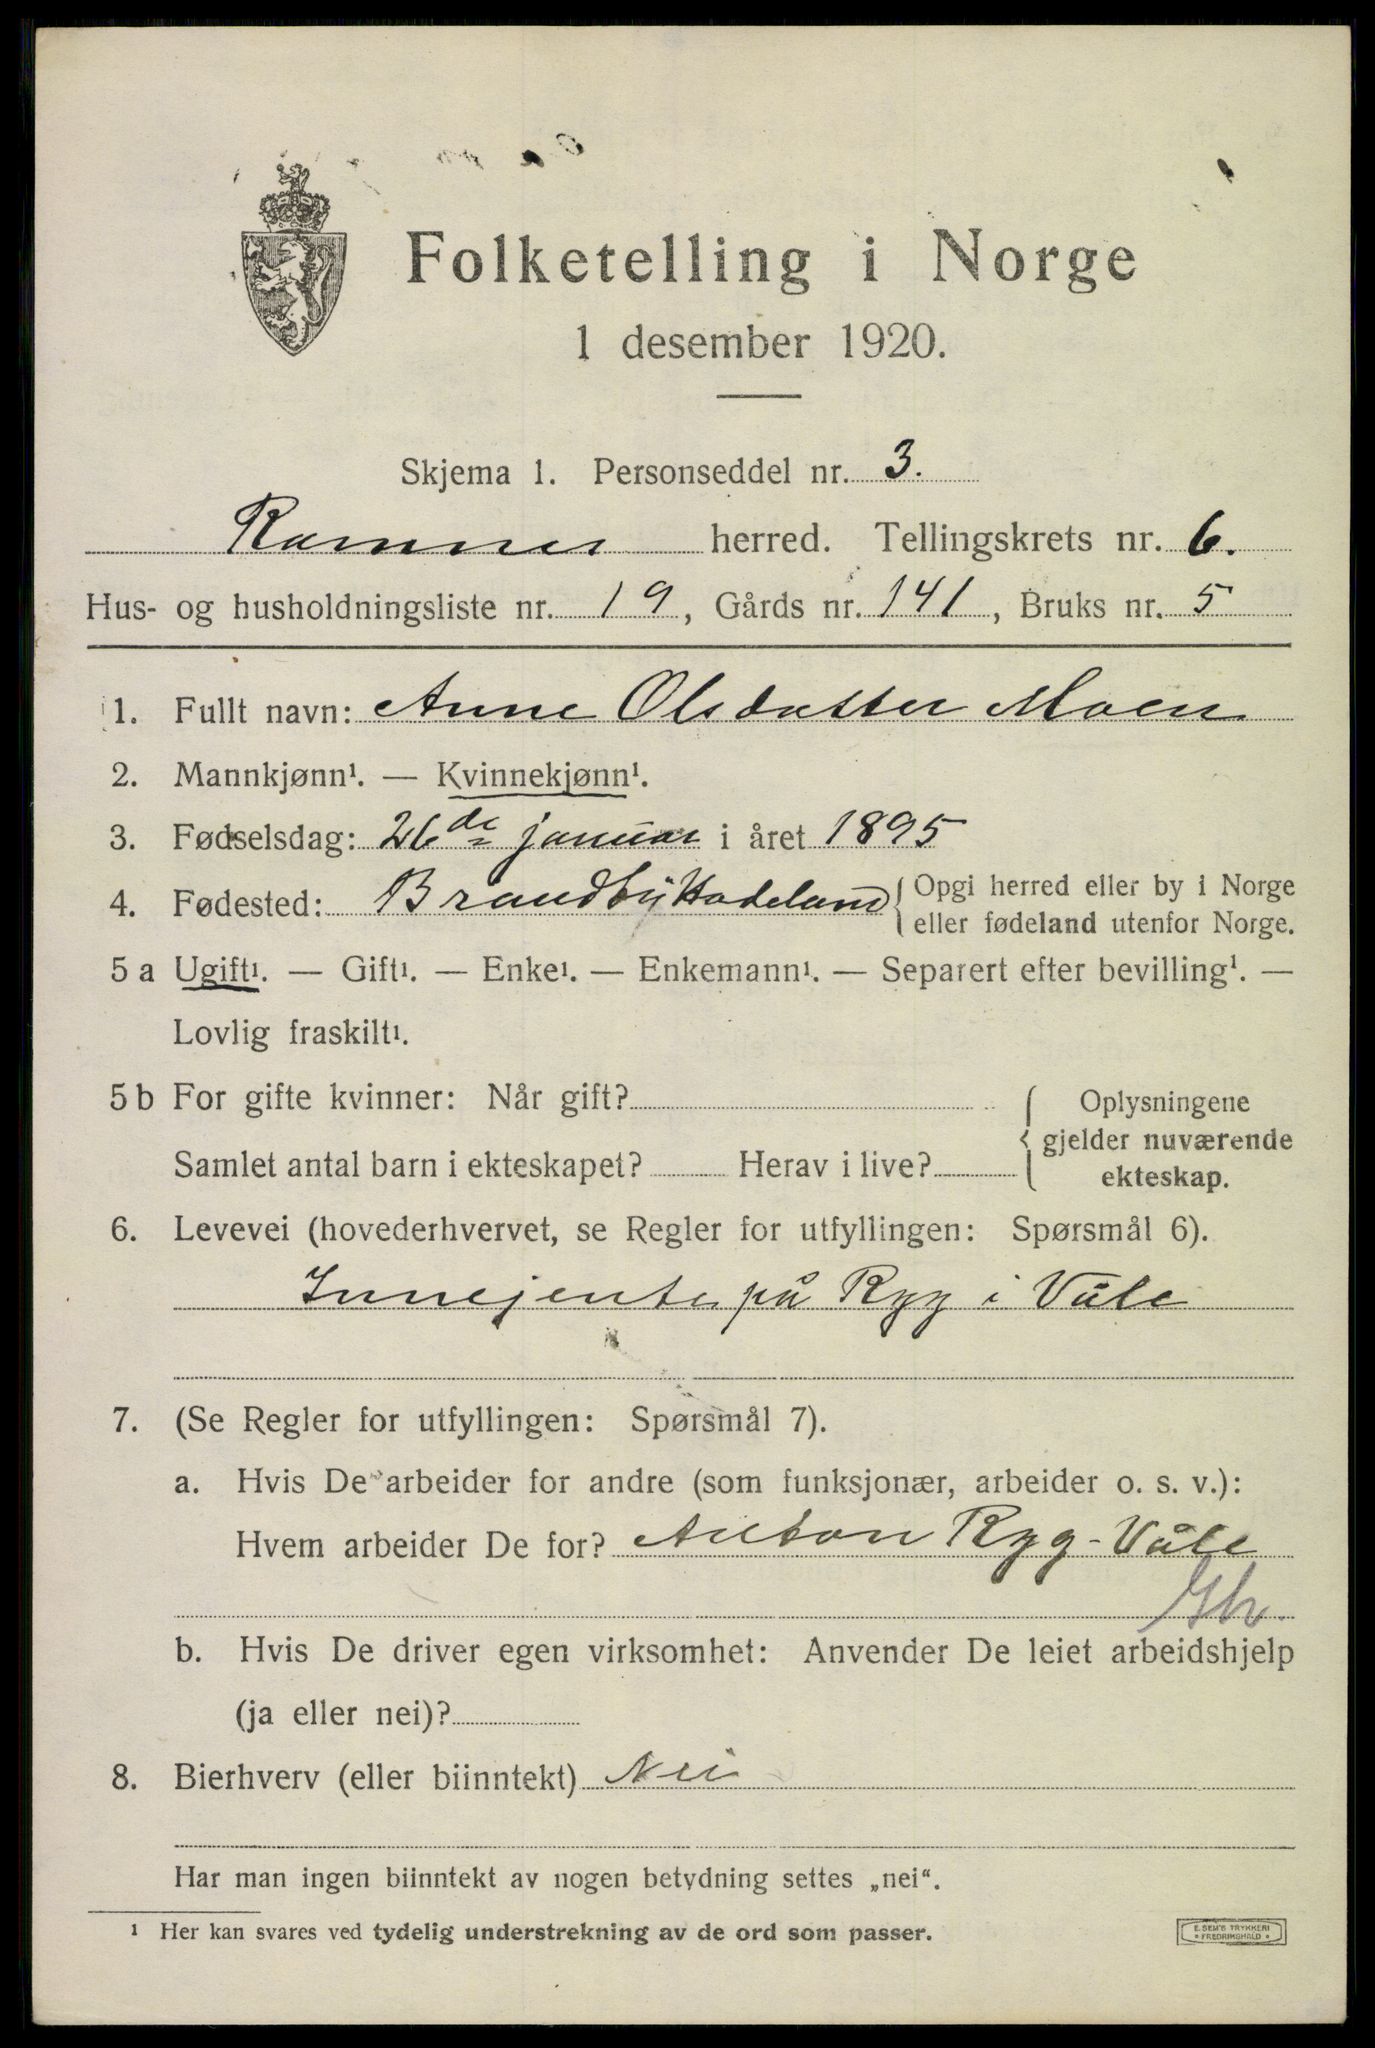 Folketelling i Norge
1 desember 1920.
Skjema 1. Personseddel nr. 3.
Ramnes herred. Tellingskrets nr. 6.
Hus- og husholdningsliste nr. 19, Gårds nr. 141, Bruks nr. 5
1. Fullt navn: Anne Olsdatter Moen
2. Mannkjønn¹. — Kvinnekjønn¹.
3. Fødselsdag: 26de januar i året 1895
4. Fødested: Brandbu Hadeland { Opgi herred eller by i Norge
eller fødeland utenfor Norge.
5 a Ugift¹. — Gift¹. — Enke¹. — Enkemann¹. — Separert efter bevilling¹. —
Lovlig fraskilt¹.
5 b For gifte kvinner: Når gift?
Samlet antal barn i ekteskapet? Herav i live?
{ Oplysningene
gjelder nuværende
ekteskap.
6. Levevei (hovederhvervet, se Regler for utfyllingen: Spørsmål 6).
Innejente på Ryg i Våle
7. (Se Regler for utfyllingen: Spørsmål 7).
a. Hvis De arbeider for andre (som funksjonær, arbeider o. s. v.):
Hvem arbeider De for? Anton Ryg - Våle
b. Hvis De driver egen virksomhet: Anvender De leiet arbeidshjelp
(ja eller nei)?
8. Bierhverv (eller biinntekt) Nei
Har man ingen biinntekt av nogen betydning settes „nei“.
¹ Her kan svares ved tydelig understrekning av de ord som passer.
E. SEM'S TRYKKERI
• FREDRIKSHALD •